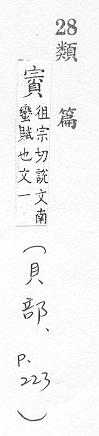 28
類篇
賨
徂宗切說文南
蠻賦也文一
(貝部、
p.
223)